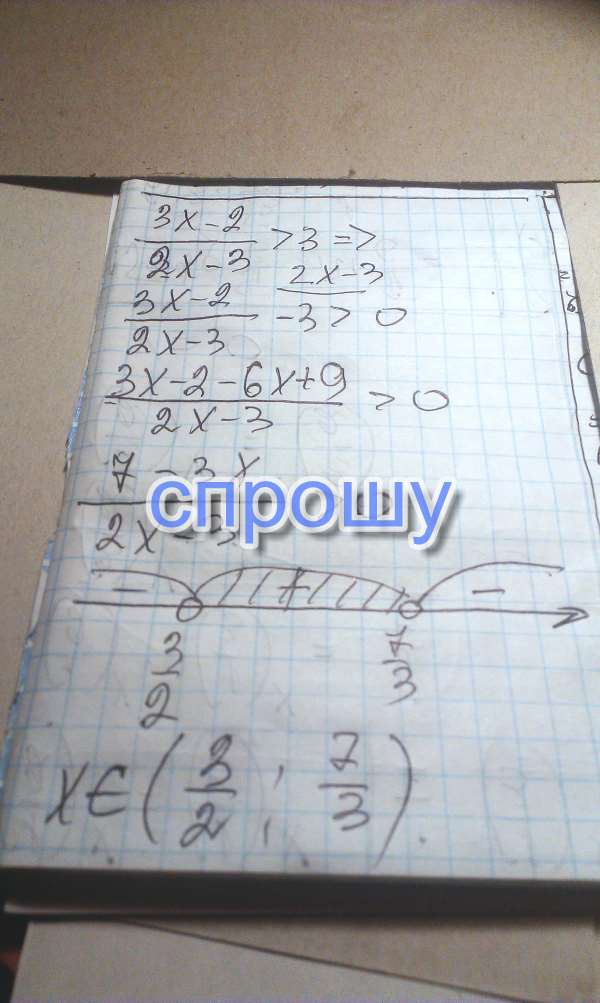 3x-2
/2x-3 > 3 =>
2x-3
3x-2
/2x-3 -3 > 0
3x-2-6x+9
/2x-3 > 0
7-3x
/2x-3
спрошу
- + -
3/2 7/3
x∈(3/2; 7/3)